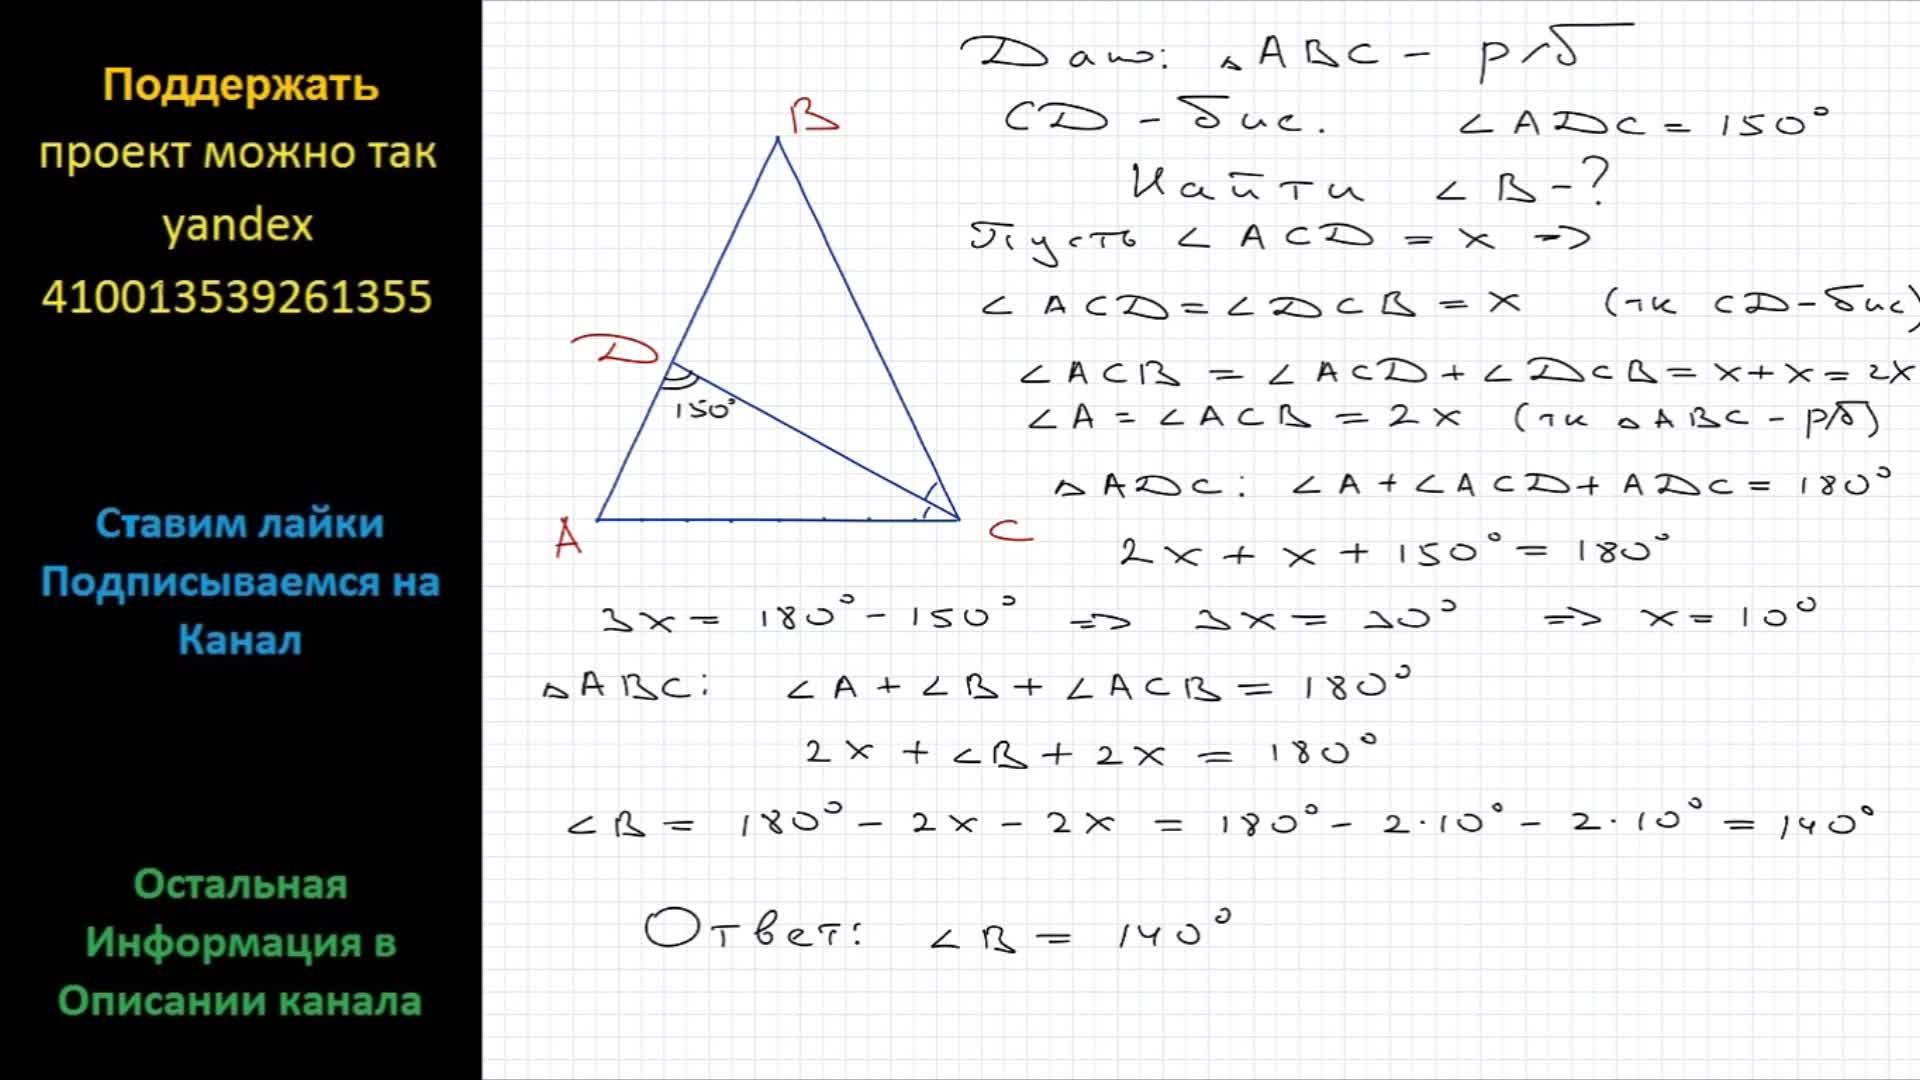 Поддержать
проект можно так
yandex
410013539261355
Ставим лайки
Подписываемся на
Канал
Остальная
Информация в
Описании канала
B
D
150°
A
C
Дано: △ABC - р/б
CD - бис. ∠ADC = 150°
Найти ∠B - ?
Пусть ∠ACD = x =>
∠ACD = ∠DCB = x (тк CD - бис)
∠ACB = ∠ACD + ∠DCB = x + x = 2x
∠A = ∠ACB = 2x (тк △ABC - р/б)
△ADC: ∠A + ∠ACD + ADC = 180°
2x + x + 150° = 180°
3x = 180° - 150° => 3x = 30° => x = 10°
△ABC: ∠A + ∠B + ∠ACB = 180°
2x + ∠B + 2x = 180°
∠B = 180° - 2x - 2x = 180° - 2·10° - 2·10° = 140°
Ответ: ∠B = 140°